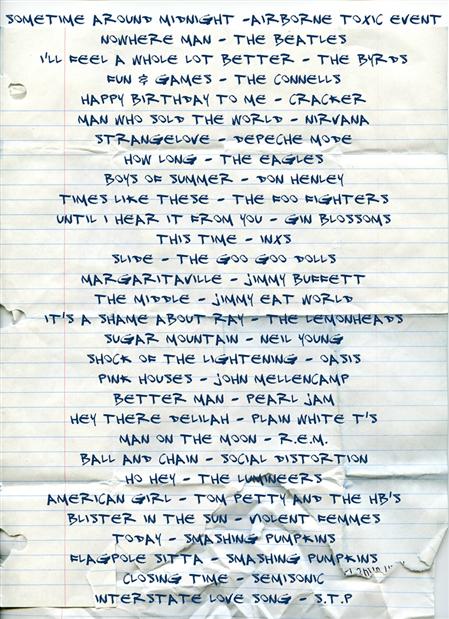 SOMETIME AROUND MIDNIGHT -AIRBORNE TOXIC EVENT
NOWHERE MAN - THE BEATLES
I'LL FEEL A WHOLE LOT BETTER - THE BYRDS
FUN & GAMES - THE CONNELLS
HAPPY BIRTHDAY TO ME - CRACKER
MAN WHO SOLD THE WORLD - NIRVANA
STRANGELOVE - DEPECHE MODE
HOW LONG - THE EAGLES
BOYS OF SUMMER - DON HENLEY
TIMES LIKE THESE - THE FOO FIGHTERS
UNTIL I HEAR IT FROM YOU - GIN BLOSSOMS
THIS TIME - INXS
SLIDE - THE GOO GOO DOLLS
MARGARITAVILLE - JIMMY BUFFETT
THE MIDDLE - JIMMY EAT WORLD
IT'S A SHAME ABOUT RAY - THE LEMONHEADS
SUGAR MOUNTAIN - NEIL YOUNG
SHOCK OF THE LIGHTENING - OASIS
PINK HOUSES - JOHN MELLENCAMP
BETTER MAN - PEARL JAM
HEY THERE DELILAH - PLAIN WHITE T'S
MAN ON THE MOON - R.E.M.
BALL AND CHAIN - SOCIAL DISTORTION
HO HEY - THE LUMINEERS
AMERICAN GIRL - TOM PETTY AND THE HB'S
BLISTER IN THE SUN - VIOLENT FEMMES
TODAY - SMASHING PUMPKINS
FLAGPOLE SITTA - SMASHING PUMPKINS
CLOSING TIME - SEMISONIC
INTERSTATE LOVE SONG - S.T.P